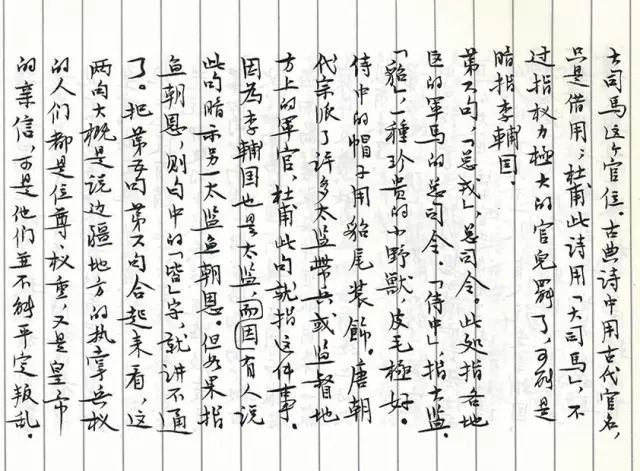 大司馬这个官位。古典诗中用古代官名，
只是借用；杜甫此詩用「大司馬」，不
过指权力極大的官兒罢了，可能是
暗指李輔囯．
第六句，「总戎」，总司令。此处指各地
区的軍馬的总司令。「侍中」，指太监。
「貂」，一種珍貴的小野獸，皮毛極好。
侍中的帽子用貂尾装飾。唐朝
代宗派了许多太监带兵或监督地
方上的軍官，杜甫此句就指这件事．
因為李輔囯也是太监，而因有人说
此句暗示另一太监鱼朝恩。但如果指
鱼朝恩，则句中的「皆」字，就讲不通
了。把第五句第六句合起来看，这
两句大概是说边疆地方的执掌兵权
的人们都是位尊、权重，又是皇帝
的亲信，可是他们並不能平定叛乱．